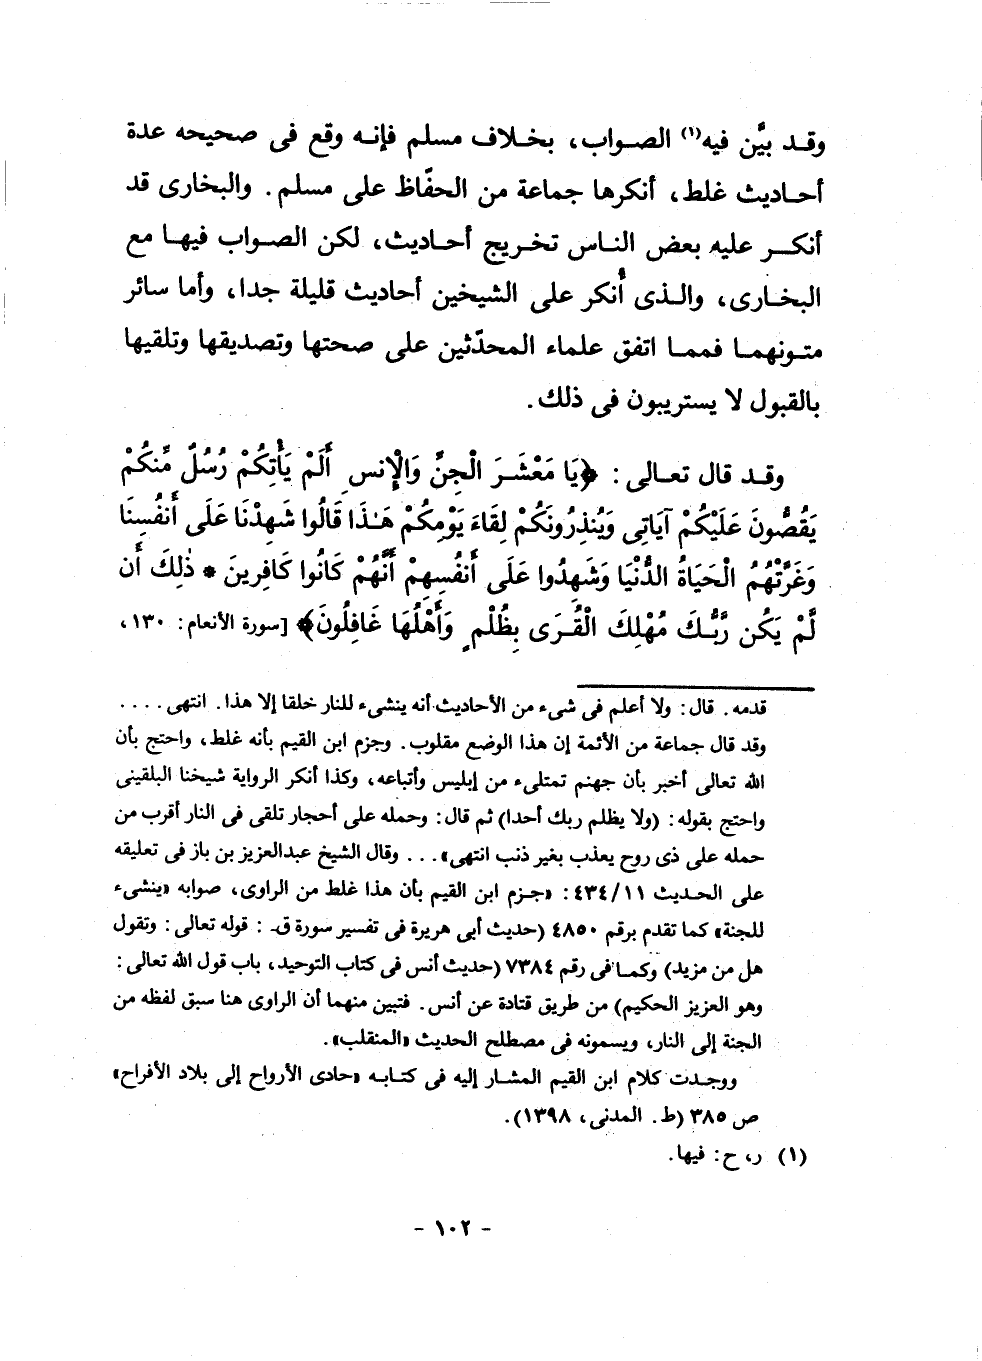 وقـد بيَّن فيه(١) الصـواب، بخـلاف مسلم فإنـه وقع فى صحيحه عدة
أحـاديث غلط، أنكرها جماعة من الحفّاظ على مسلم. والبخارى قد
أنكـر عليه بعض النـاس تخريج أحـاديث، لكن الصـواب فيهـا مع
البخـارى، والـذى أُنكر على الشيخين أحاديث قليلة جدا، وأما سائر
متـونهمـا فممـا اتفق علماء المحدّثين على صحتها وتصديقها وتلقيها
بالقبول لا يستريبون فى ذلك.
وقـد قال تعـالى: ﴿يَا مَعْشَـرَ الْجِنِّ وَالْإِنسِ أَلَمْ يَأْتِكُمْ رُسُلٌ مِّنكُمْ
يَقُصُّونَ عَلَيْكُمْ آيَاتِى وَيُنذِرُونَكُمْ لِقَاءَ يَوْمِكُمْ هَـٰذَا قَالُوا شَهِدْنَا عَلَى أَنفُسِنَا
وَغَرَّتْهُمُ الْحَيَاةُ الدُّنْيَا وَشَهِدُوا عَلَى أَنفُسِهِمْ أَنَّهُمْ كَانُوا كَافِرِينَ * ذَٰلِكَ أَن
لَّمْ يَكُن رَّبُّـكَ مُهْلِكَ الْقُـرَى بِظُلْمٍ وَأَهْلُهَا غَافِلُونَ﴾ [سورة الأنعام: ١٣٠،
قدمه. قال: ولا أعلم فى شىء من الأحاديث أنه ينشىء للنار خلقا إلا هذا. انتهى ....
وقد قال جماعة من الأئمة إن هذا الوضع مقلوب. وجزم ابن القيم بأنه غلط، واحتج بأن
الله تعالى أخبر بأن جهنم تمتلىء من إبليس وأتباعه، وكذا أنكر الرواية شيخنا البلقينى
واحتج بقوله: (ولا يظلم ربك أحدا) ثم قال: وحمله على أحجار تلقى فى النار أقرب من
حمله على ذى روح يعذب بغير ذنب انتهى»... وقال الشيخ عبدالعزيز بن باز فى تعليقه
على الحديث ٤٣٤/١١: «جـزم ابن القيم بأن هذا غلط من الراوى، صوابه «ينشىء
للجنة» كما تقدم برقم ٤٨٥٠ (حديث أبى هريرة فى تفسير سورة قۤ: قوله تعالى: وتقول
هل من مزيد) وكمـا فى رقم ٧٣٨٤ (حديث أنس فى كتاب التوحيد، باب قول الله تعالى:
وهو العزيز الحكيم) من طريق قتادة عن أنس. فتبين منهما أن الراوى هنا سبق لفظه من
الجنة إلى النار، ويسمونه فى مصطلح الحديث «المنقلب».
ووجـدت كلام ابن القيم المشـار إليه فى كتـابـه «حادى الأرواح إلى بلاد الأفراح»
ص ٣٨٥ (ط. المدنى، ١٣٩٨).
(١) ر، ح: فيها.
- ١٠٢ -